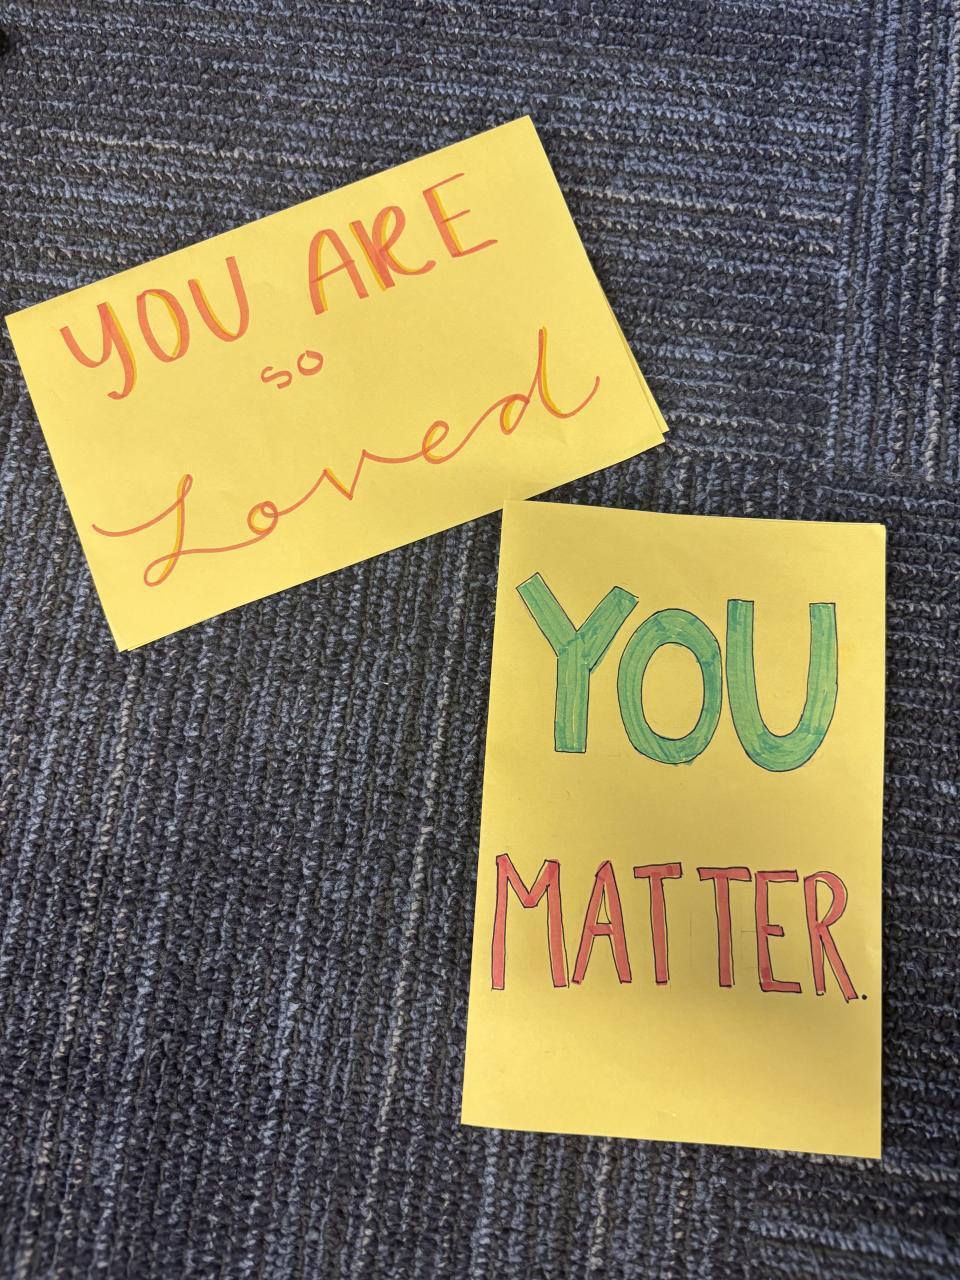 YOU ARE
so
Loved
YOU
MATTER.